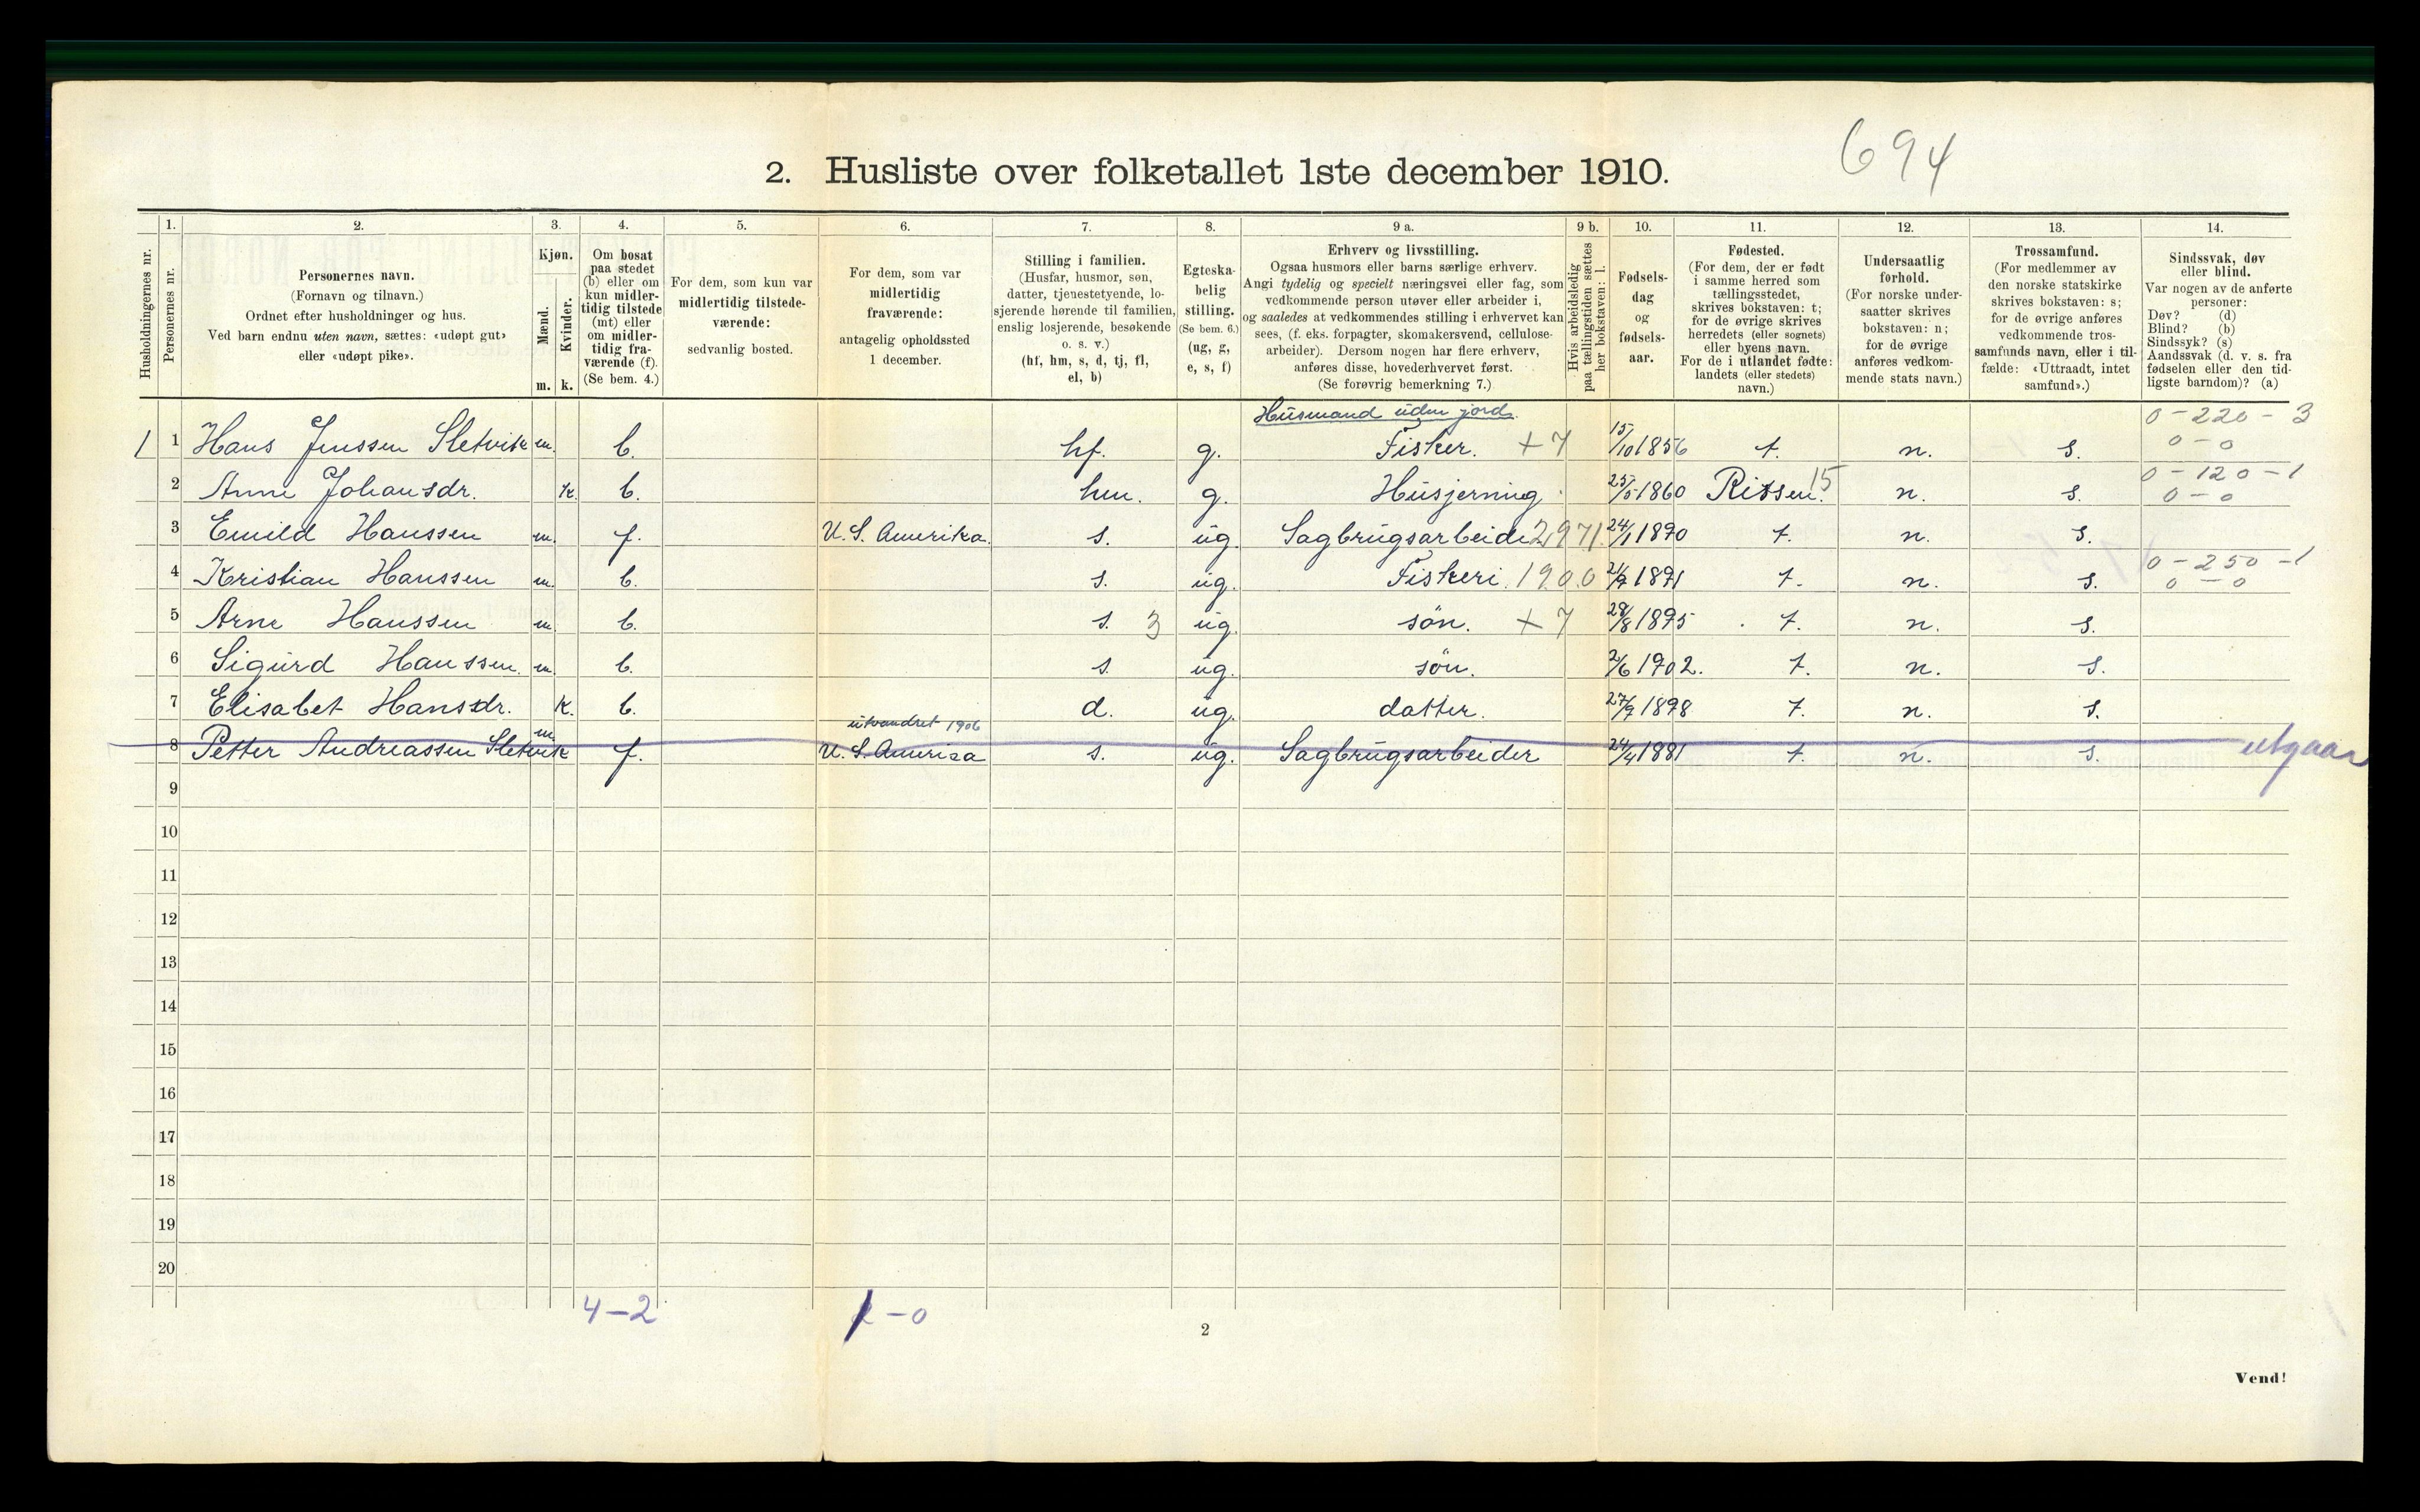 694
2. Husliste over folketallet 1ste december 1910.
Husholdningernes nr.
1.
Personernes nr.
2.
Personernes navn.
(Fornavn og tilnavn.)
Ordnet efter husholdninger og hus.
Ved barn endnu uten navn, sættes: «udøpt gut»
eller «udøpt pike».
3.
Kjøn.
Mænd.
Kvinder.
m. k.
4.
Om bosat
paa stedet
(b) eller om
kun midler-
tidig tilstede
(mt) eller
om midler-
tidig fra-
værende (f).
(Se bem. 4.)
5.
For dem, som kun var
midlertidig tilstede-
værende:
sedvanlig bosted.
6.
For dem, som var
midlertidig
fraværende:
antagelig opholdssted
1 december.
7.
Stilling i familien.
(Husfar, husmor, søn,
datter, tjenestetyende, lo-
sjerende hørende til familien,
enslig losjerende, besøkende
o. s. v.)
(hf, hm, s, d, tj, fl,
el, b)
8.
Egteska-
belig
stilling.
(Se bem. 6.)
(ug, g,
e, s, f)
9 a.
Erhverv og livsstilling.
Ogsaa husmors eller barns særlige erhverv.
Angi tydelig og specielt næringsvei eller fag, som
vedkommende person utøver eller arbeider i,
og saaledes at vedkommendes stilling i erhvervet kan
sees, (f. eks. forpagter, skomakersvend, cellulose-
arbeider). Dersom nogen har flere erhverv,
anføres disse, hovederhvervet først.
(Se forøvrig bemerkning 7.)
9 b.
Hvis arbeidsledig
paa tællingstiden sættes
her bokstaven: l.
10.
Fødsels-
dag
og
fødsels-
aar.
11.
Fødested.
(For dem, der er født
i samme herred som
tællingsstedet,
skrives bokstaven: t;
for de øvrige skrives
herredets (eller sognets)
eller byens navn.
For de i utlandet fødte:
landets (eller stedets)
navn.)
12.
Undersaatlig
forhold.
(For norske under-
saatter skrives
bokstaven: n;
for de øvrige
anføres vedkom-
mende stats navn.)
13.
Trossamfund.
(For medlemmer av
den norske statskirke
skrives bokstaven: s;
for de øvrige anføres
vedkommende tros-
samfunds navn, eller i til-
fælde: «Uttraadt, intet
samfund».)
14.
Sindssvak, døv
eller blind.
Var nogen av de anførte
personer:
Døv? (d)
Blind? (b)
Sindssyk? (s)
Aandssvak (d. v. s. fra
fødselen eller den tid-
ligste barndom)? (a)
Husmand uden jord. 0-220-3
1 1 Hans Jenssen Sletvik m. b. hf. g. Fisker. +7 15/10 1856 t. n. s. 0-0
0-120-1
2 Anne Johansdr. k. b. hm. g. Husjerning. 25/5 1860 Rissen. 15 n. s. 0-0
3 Emild Hanssen m. f. U. S. Amerika. s. ug. Sagbrugsarbeide 2971. 24/1 1890 t. n. s.
0-250-1
4 Kristian Hanssen m. b. s. ug. Fiskeri. 1900 1891 t. n. s. 0-0
5 Arne Hanssen m. b. s. 3 ug. søn. +7 28/8 1895 t. n. s.
6 Sigurd Hanssen. m. b. s. ug. søn. 2/6 1902. t. n. s.
7 Elisabet Hansdr. k. b. d. ug. datter. 27/7 1898 t. n. s.
utvandret 1906
8 Petter Andreassen Sletvik m. f. U. S. America s. ug. Sagbrugsarbeider 24/4 1881 t. n. s. utgaar
9
10
11
12
13
14
15
16
17
18
19
20
4-2 -0
2
Vend!